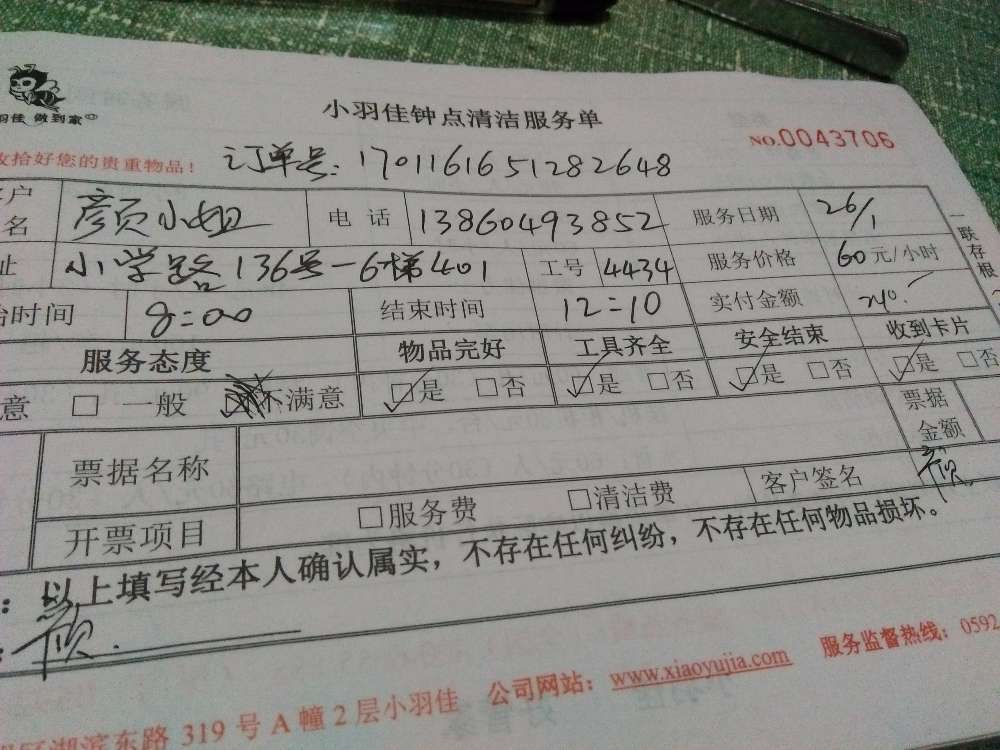 小羽佳钟点清洁服务单
羽佳 做到家
NO.0043706
收拾好您的贵重物品! 订单号:1701161651282648
客户名 颜小姐 电话 13860493852 服务日期 26/1
址 小学路136号-6梯401 工号 4434 服务价格 60元/小时
始时间 8:00 结束时间 12:10 实付金额 240.
服务态度 物品完好 工具齐全 安全结束 收到卡片
意 □一般 ☑不满意 ☑是 □否 ☑是 □否 ☑是 □否 ☑是 □否
票据名称 票据金额
开票项目 □服务费 □清洁费 客户签名 颜
:以上填写经本人确认属实,不存在任何纠纷,不存在任何物品损坏。
: 颜.
湖滨东路 319 号 A 幢 2 层小羽佳 公司网站:www.xiaoyujia.com 服务监督热线:0592
一联存根